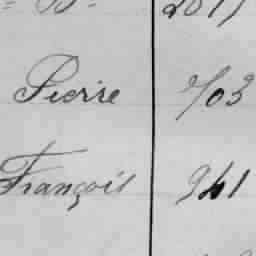 Pierre 703
François 341